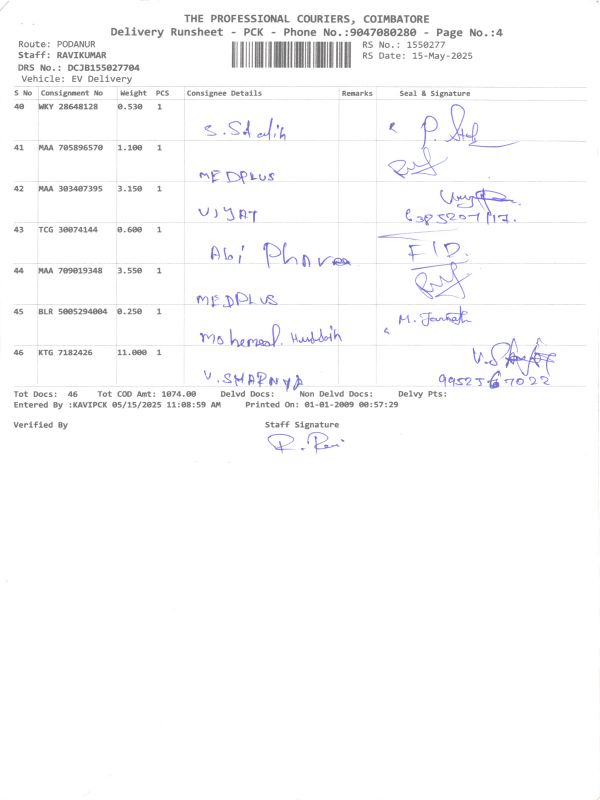 THE PROFESSIONAL COURIERS, COIMBATORE
Delivery Runsheet - PCK - Phone No.:9047080280 - Page No.:4
Route: PODANUR RS No.: 1550277
Staff: RAVIKUMAR RS Date: 15-May-2025
DRS No.: DCJB155027704
Vehicle: EV Delivery
S No Consignment No Weight PCS Consignee Details Remarks Seal & Signature
40 WKY 28648128 0.530 1
S.
41 MAA 705896570 1.100 1
MEDPLUS
42 MAA 303407395 3.150 1
VIJAY 6385207117.
43 TCG 30074144 0.600 1
Abi
44 MAA 709019348 3.550 1
MEDPLUS
45 BLR 5005294004 0.250 1
M.
46 KTG 7182426 11.000 1
V.
V. 9952567022
Tot Docs: 46 Tot COD Amt: 1074.00 Delvd Docs: Non Delvd Docs: Delvy Pts:
Entered By :KAVIPCK 05/15/2025 11:08:59 AM Printed On: 01-01-2009 00:57:29
Verified By Staff Signature
R. Ravi